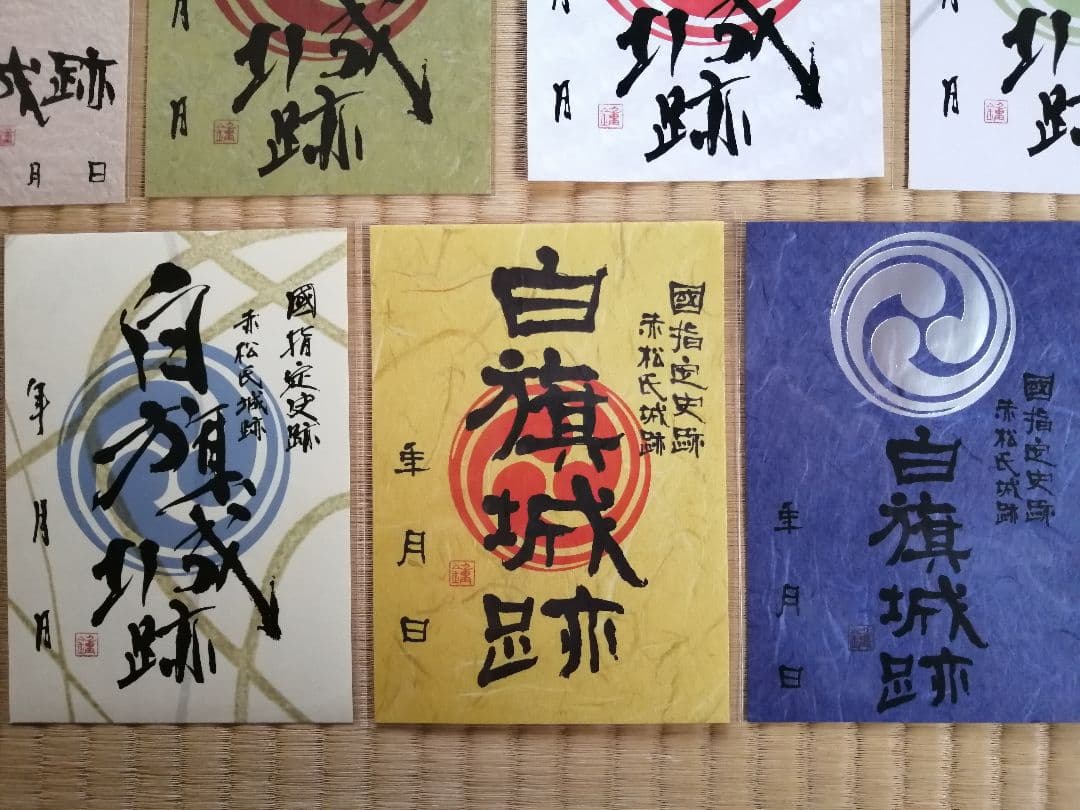 城跡
月 日
月
月
城
跡
月
月
城
跡
月
月
城
跡
國指定史跡
赤松氏城跡
白旗城跡
年 月 月
國指定史跡
赤松氏城跡
白旗城跡
年 月 日
國指定史跡
赤松氏城跡
白旗城跡
年 月 日